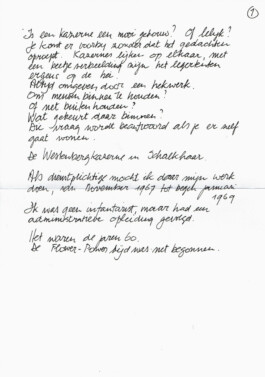 ①
Is een kazerne een mooi gebouw? Of lelijk?
Je komt er voorbij zonder dat het gedachten
oproept. Kazernes lijken op elkaar, met
een beetje verbeelding zijn het legerkisten
ergens op de hei.
Altijd omgeven door een hekwerk.
Om mensen binnen te houden?
Of net buiten houden?
Wat gebeurt daar binnen?
Die vraag wordt beantwoord als je er zelf
gaat wonen.
De Westenbergkazerne in Schalkhaar
Als dienstplichtige mocht ik daar mijn werk
doen, van November 1967 tot begin januari
1969
Ik was geen infanterist, maar had een
administratieve opleiding gevolgd.
Het waren de jaren 60.
De Flower-Power tijd was net begonnen.